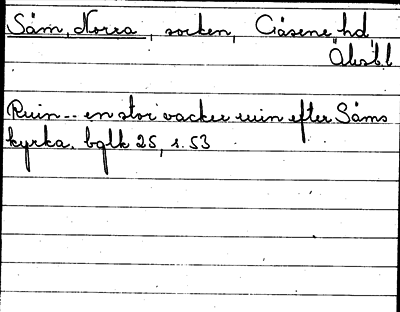 Säm, Norra, socken, Gäsene hd
Älvsbl
Ruin -- en stor vacker ruin efter Säms
kyrka. bglk 25, s. 53